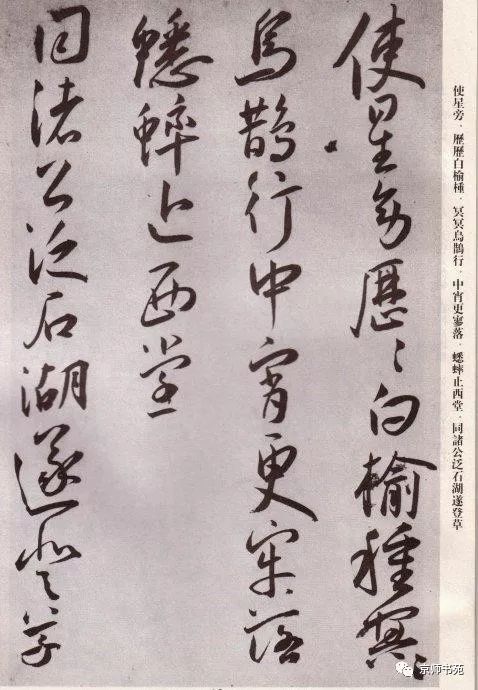 使星旁．歷歷白榆種．冥冥烏鵲行．中宵更寥落．蟋蟀止西堂．同諸公泛石湖遂登草
使星旁歷〻白榆種冥〻
烏鵲行中宵更寥落
蟋蟀上西堂
同諸公泛石湖遂登草
京师书苑